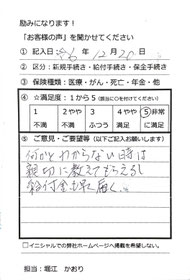 励みになります!
「お客様の声」を聞かせてください
① 記入日 R6年 12月 20日
② 区分：新規手続き・給付手続き・保全手続き
③ 保険種類：医療・がん・死亡・年金・他
④ ☆満足度：1から5（該当に〇を付けてください）
1 2やや 3 4やや 5非常
不満 不満 ふつう 満足 に満足
⑤ ご意見・ご要望等
何かとわからない時は
親切に教えてもらえるし
給付金も早く届く。
□イニシャルでの弊社ホームページへ掲載を希望しない。
担当：堀江 かおり